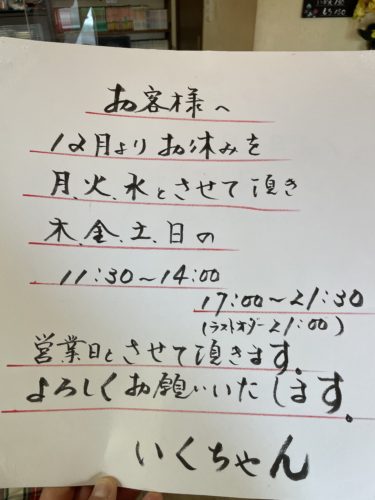 お客様へ
12月よりお休みを
月、火、水とさせて頂き
木、金、土、日の
11:30〜14:00
17:00〜21:30
(ラストオーダー21:00)
営業日とさせて頂きます。
よろしくお願いいたします。
いくちゃん